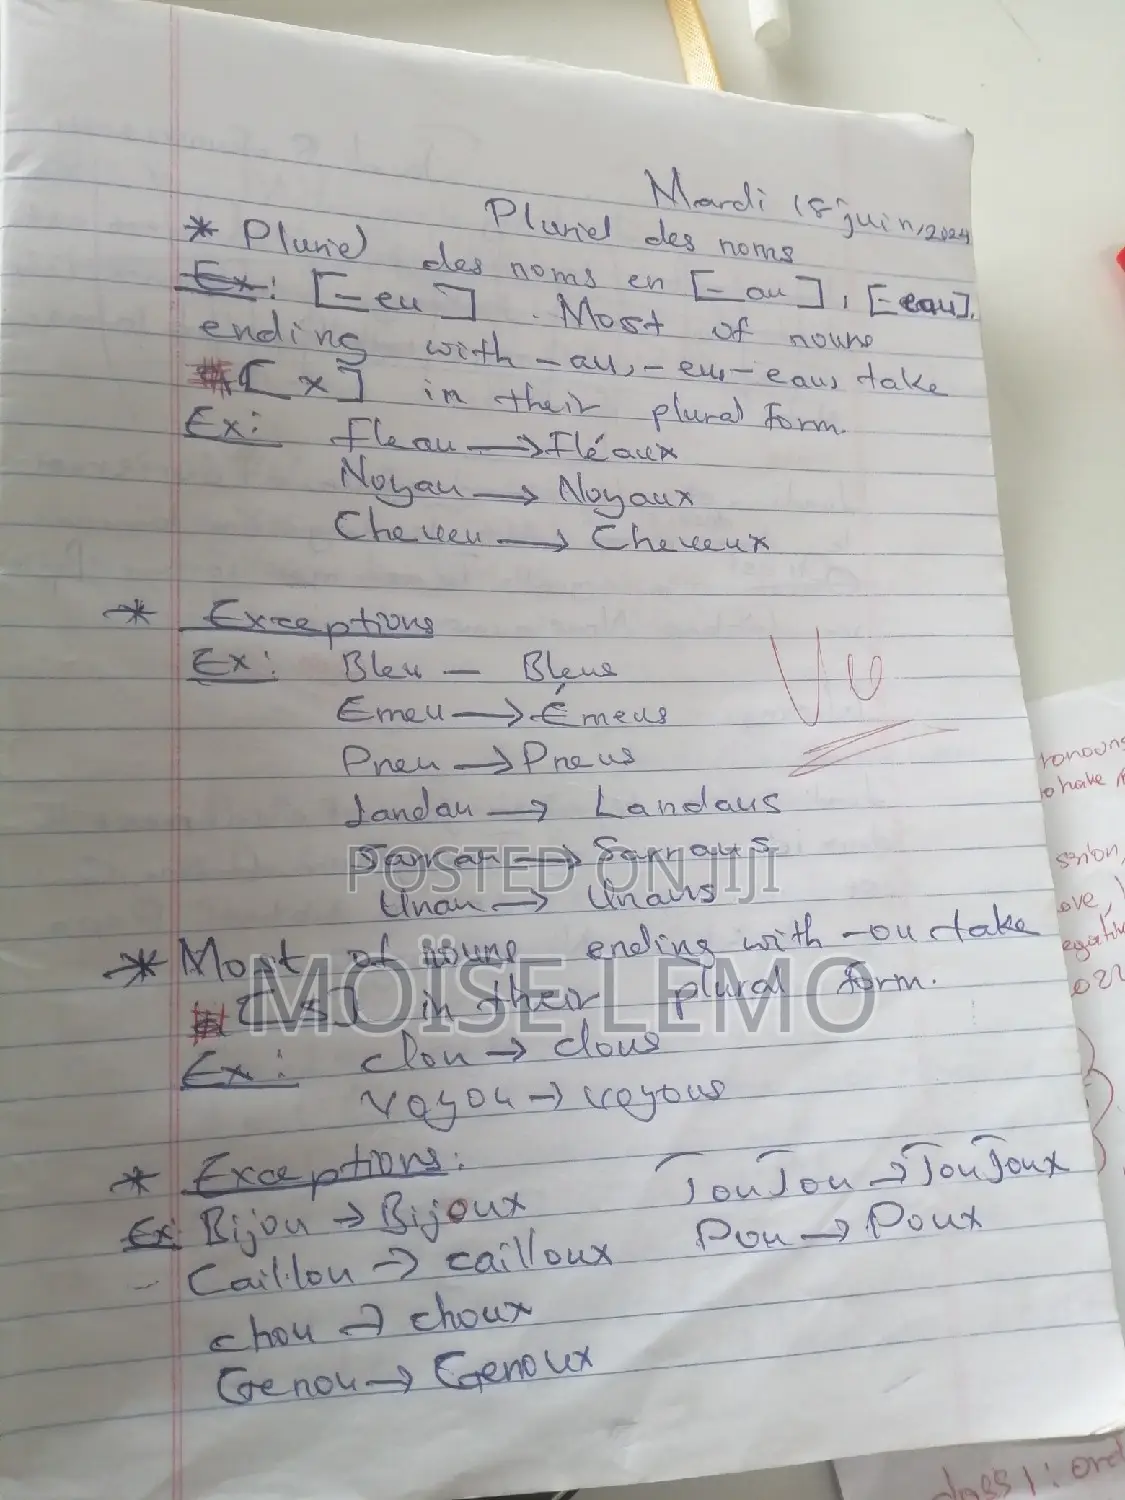 Mardi 18 juin, 2024
Pluriel des noms
* Pluriel des noms en [-au], [-eau],
Ex: [-eu]. Most of nouns
ending with -au, -eu, -eau, take
[x] in their plural form.
Ex: Fleau → Fléaux
Noyau → Noyaux
Cheveu → Cheveux
* Exceptions
Ex: Bleu — Bleus
Emeu → Émeus
Pneu → Pneus
Landau → Landaus
Sarrau → Sarraus
Unau → Unaus
* Most of nouns ending with -ou take
[s] in their plural form.
Ex: clou → clous
voyou → voyous
* Exceptions:
Ex: Bijou → Bijoux
Caillou → cailloux
chou → choux
Genou → Genoux
JouJou → JouJoux
Pou → Poux
Vu
POSTED ON JIJI
MOISE LEMO
ronouns
ove,
022
class 1: ord